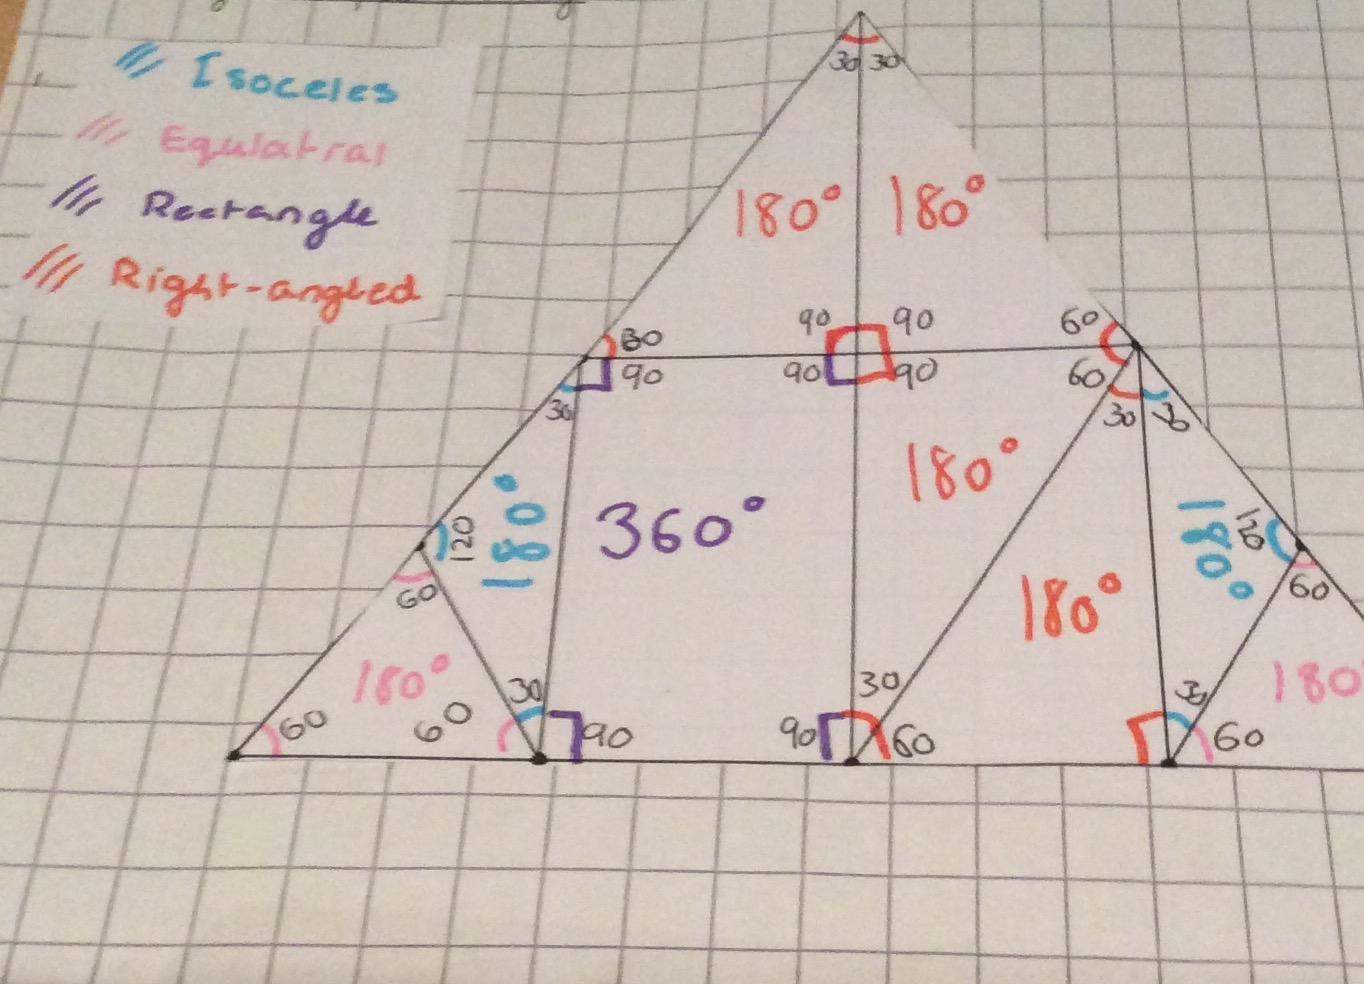 Isoceles
Equlatral
Rectangle
Right-angled
30 30
180° 180°
80 90 90 60
90 90 90 60
30 30 30
180°
180° 360° 180°
120 120
60 180° 60
180° 180
60 60 30 30 30
90 90 60 60